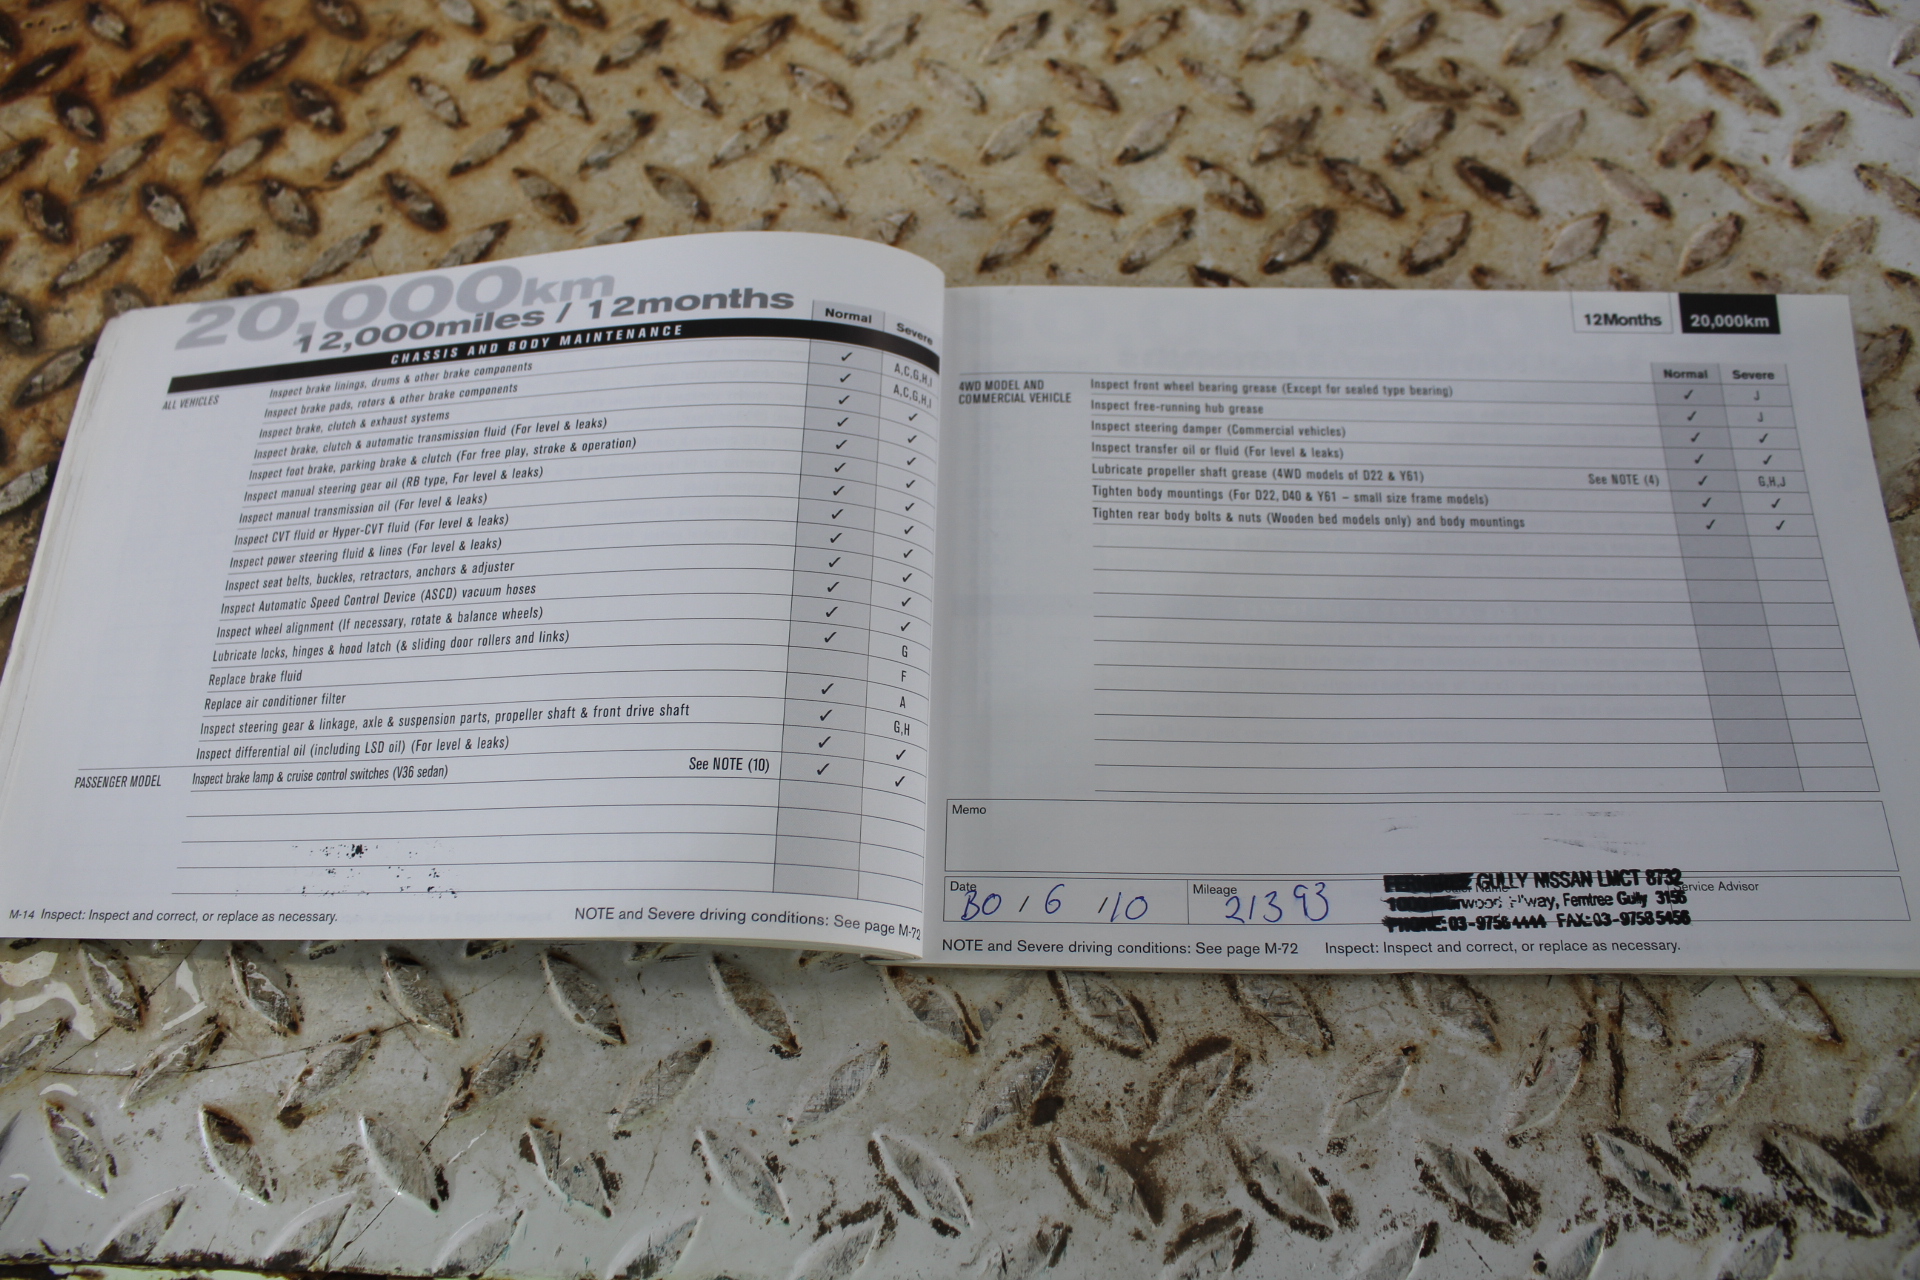 20,000km
12,000miles / 12months
CHASSIS AND BODY MAINTENANCE
Normal Severe
ALL VEHICLES Inspect brake linings, drums & other brake components ✓ A,C,G,H,I
Inspect brake pads, rotors & other brake components ✓ A,C,G,H,I
Inspect brake, clutch & exhaust systems ✓ ✓
Inspect brake, clutch & automatic transmission fluid (For level & leaks) ✓ ✓
Inspect foot brake, parking brake & clutch (For free play, stroke & operation) ✓ ✓
Inspect manual steering gear oil (RB type, For level & leaks) ✓ ✓
Inspect manual transmission oil (For level & leaks) ✓ ✓
Inspect CVT fluid or Hyper-CVT fluid (For level & leaks) ✓ ✓
Inspect power steering fluid & lines (For level & leaks) ✓ ✓
Inspect seat belts, buckles, retractors, anchors & adjuster ✓ ✓
Inspect Automatic Speed Control Device (ASCD) vacuum hoses ✓ ✓
Inspect wheel alignment (If necessary, rotate & balance wheels) ✓ ✓
Lubricate locks, hinges & hood latch (& sliding door rollers and links) ✓ G
Replace brake fluid F
Replace air conditioner filter ✓ A
Inspect steering gear & linkage, axle & suspension parts, propeller shaft & front drive shaft ✓ G,H
Inspect differential oil (including LSD oil) (For level & leaks) ✓ ✓
PASSENGER MODEL Inspect brake lamp & cruise control switches (V36 sedan) See NOTE (10) ✓ ✓
M-14 Inspect: Inspect and correct, or replace as necessary. NOTE and Severe driving conditions: See page M-72
12Months 20,000km
Normal Severe
4WD MODEL AND COMMERCIAL VEHICLE Inspect front wheel bearing grease (Except for sealed type bearing) ✓ J
Inspect free-running hub grease ✓ J
Inspect steering damper (Commercial vehicles) ✓ ✓
Inspect transfer oil or fluid (For level & leaks) ✓ ✓
Lubricate propeller shaft grease (4WD models of D22 & Y61) See NOTE (4) ✓ G,H,J
Tighten body mountings (For D22, D40 & Y61 – small size frame models) ✓ ✓
Tighten rear body bolts & nuts (Wooden bed models only) and body mountings ✓ ✓
Memo
Date 30 / 6 / 10 Mileage 21393 Service Advisor
GULLY NISSAN LMCT 8732
H'way, Ferntree Gully 3156
PHONE: 03-9758 4444 FAX: 03-9758 5456
NOTE and Severe driving conditions: See page M-72 Inspect: Inspect and correct, or replace as necessary.